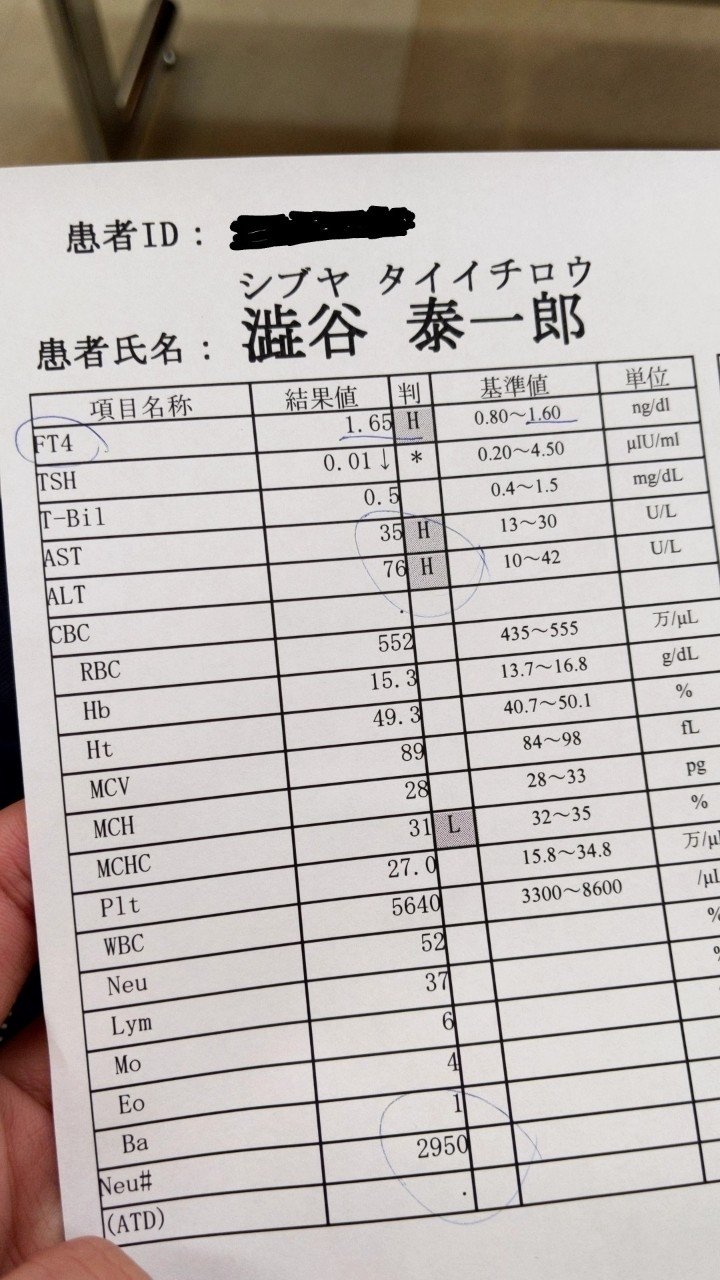 患者ID：
シブヤ タイイチロウ
患者氏名： 澁谷 泰一郎
項目名称 結果値 判 基準値 単位
FT4 1.65 H 0.80～1.60 ng/dl
TSH 0.01↓ * 0.20～4.50 μIU/ml
T-Bil 0.5 0.4～1.5 mg/dL
AST 35 H 13～30 U/L
ALT 76 H 10～42 U/L
CBC .
RBC 552 435～555 万/μL
Hb 15.3 13.7～16.8 g/dL
Ht 49.3 40.7～50.1 %
MCV 89 84～98 fL
MCH 28 28～33 pg
MCHC 31 L 32～35 %
Plt 27.0 15.8～34.8 万/μl
WBC 5640 3300～8600 /μL
Neu 52 %
Lym 37 %
Mo 6
Eo 4
Ba 1
Neu# 2950
(ATD) .